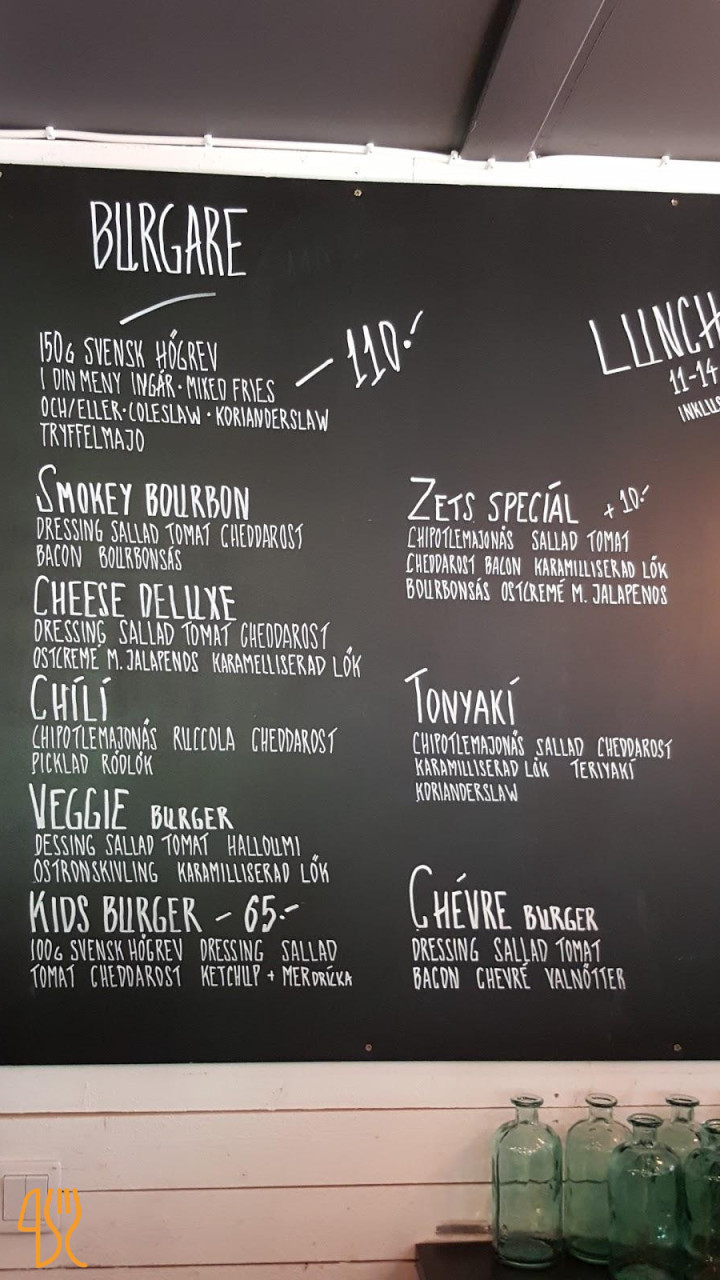 BURGARE
150G SVENSK HÖGREV
I DIN MENY INGÅR · MIXED FRIES
OCH/ELLER · COLESLAW · KORIANDERSLAW
TRYFFELMAJO
– 110:-
SMOKEY BOURBON
DRESSING SALLAD TOMAT CHEDDAROST
BACON BOURBONSÅS
CHEESE DELUXE
DRESSING SALLAD TOMAT CHEDDAROST
OSTCREMÉ M. JALAPENOS KARAMELLISERAD LÖK
CHÍLÍ
CHIPOTLEMAJONÄS RUCCOLA CHEDDAROST
PICKLAD RÖDLÖK
VEGGIE BURGER
DESSING SALLAD TOMAT HALLOUMI
OSTRONSKIVLING KARAMILLISERAD LÖK
KIDS BURGER – 65:-
100G SVENSK HÖGREV DRESSING SALLAD
TOMAT CHEDDAROST KETCHUP + MERDRICKA
LUNCH
11-14
INKLUS
ZETS SPECIÁL +10:-
CHIPOTLEMAJONÄS SALLAD TOMAT
CHEDDAROST BACON KARAMILLISERAD LÖK
BOURBONSÅS OSTCREMÉ M. JALAPENOS
TONYAKÍ
CHIPOTLEMAJONÄS SALLAD CHEDDAROST
KARAMILLISERAD LÖK TERIYAKI
KORIANDERSLAW
CHÉVRE BURGER
DRESSING SALLAD TOMAT
BACON CHEVRÉ VALNÖTTER